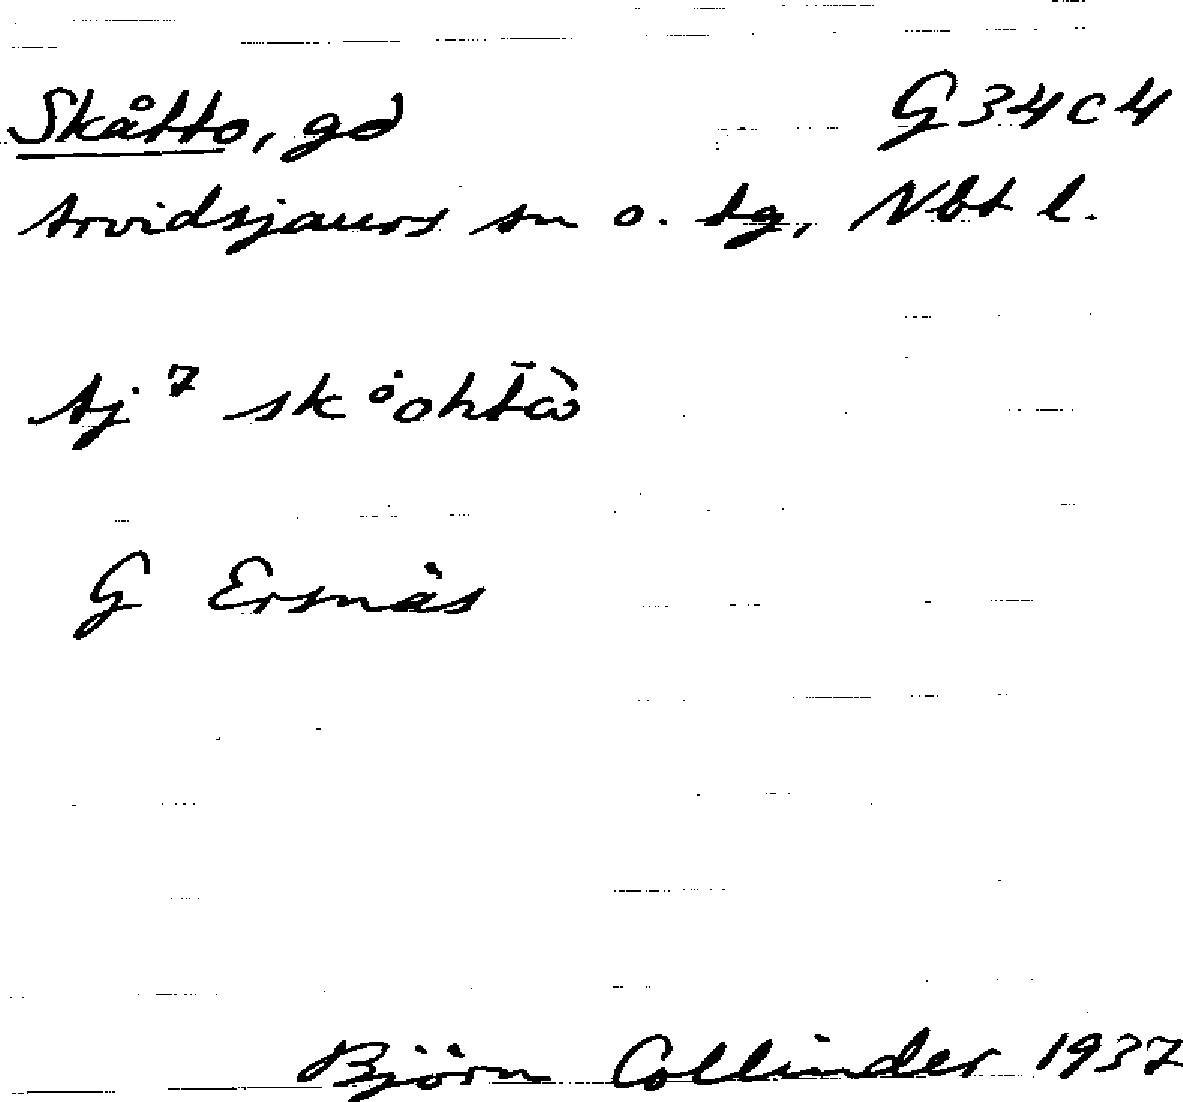 Skåtto, gd G34c4
Arvidsjaurs sn o. tg, Nbt l.
Aj 7
G Ersnäs
Björn Collinder 1937